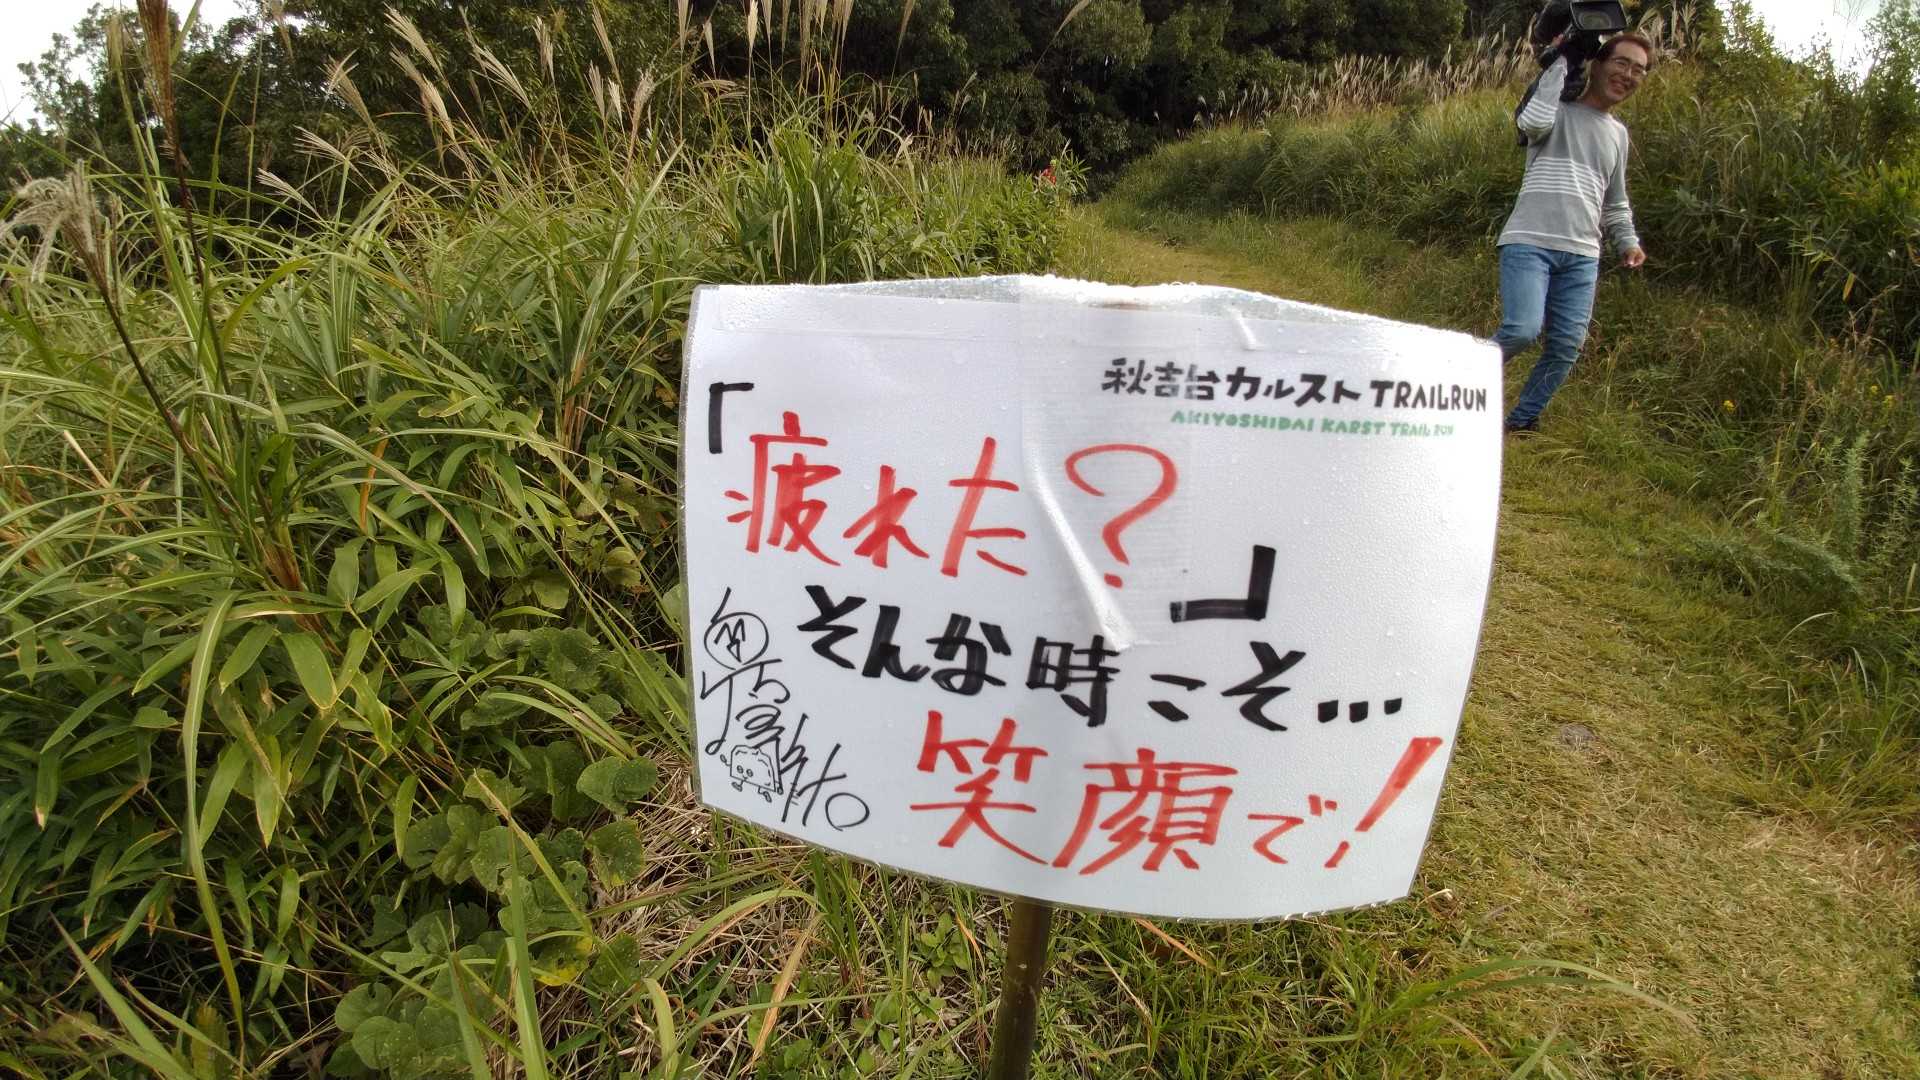 秋吉台カルスト TRAILRUN
AKIYOSHIDAI KARST TRAIL RUN
「疲れた?」
そんな時こそ...
笑顔で!